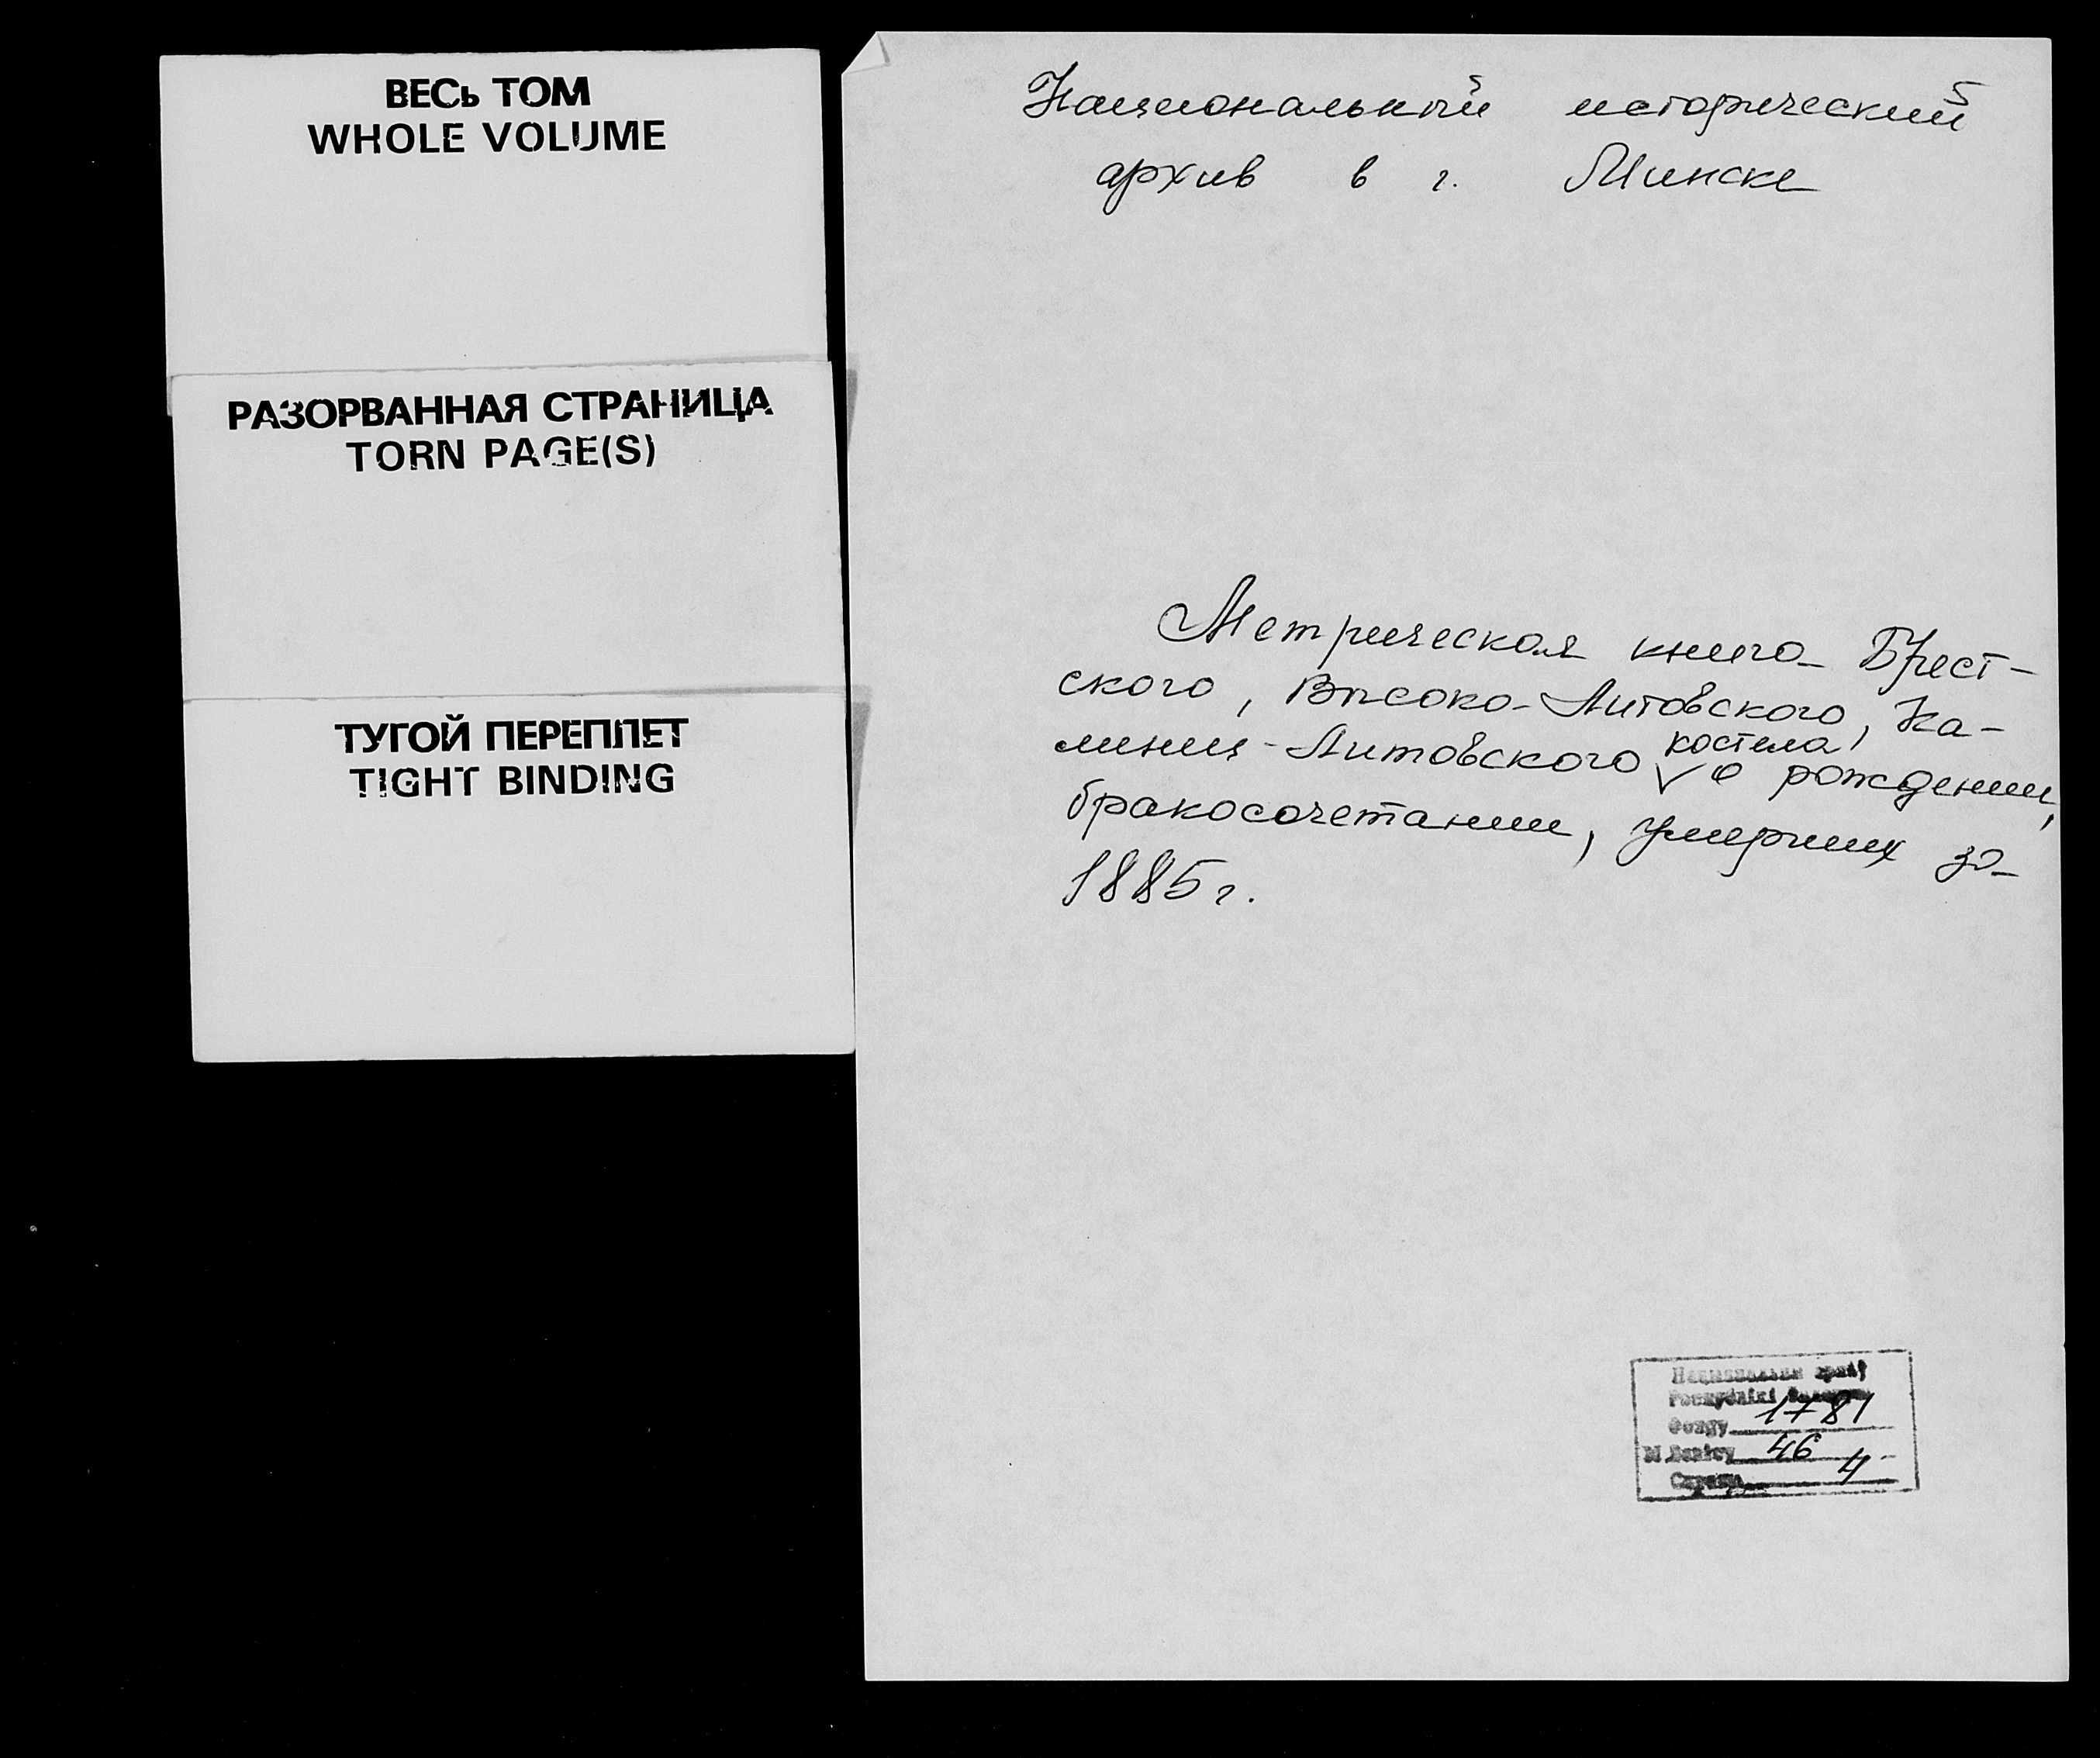 ВЕСЬ ТОМ
WHOLE VOLUME
РАЗОРВАННАЯ СТРАНИЦА
TORN PAGE(S)
ТУГОЙ ПЕРЕПЛЕТ
TIGHT BINDING
Национальный исторический
архив в г. Минске
Метрическая книга Брест-
ского, Высоко-Литовского, Ка-
менец-Литовского костела, о рождении,
бракосочетании, умерших за
1885 г.
Рэспублікі
Фонду 1781
Вопісу 46
Справа 4